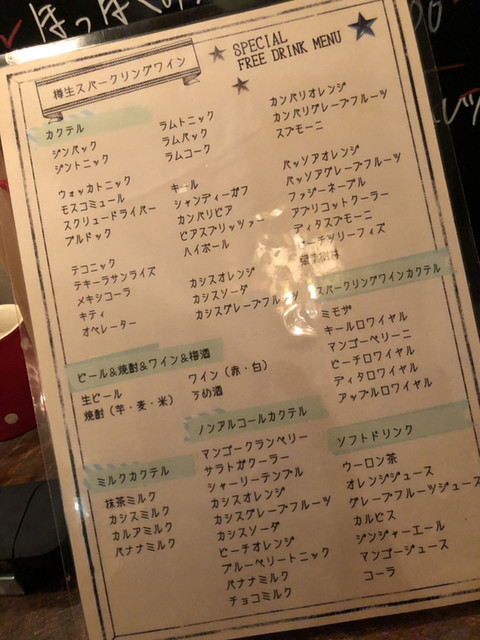 樽生スパークリングワイン
SPECIAL
FREE DRINK MENU
カクテル
ジンバック
ジントニック
ウォッカトニック
モスコミュール
スクリュードライバー
ブルドック
テコニック
テキーラサンライズ
メキシコーラ
キティ
オペレーター
ラムトニック
ラムバック
ラムコーク
キール
シャンディーガフ
カンパリビア
ビアスプリッツァー
ハイボール
カシスオレンジ
カシスソーダ
カシスグレープフルーツ
カンパリオレンジ
カンパリグレープフルーツ
スプモーニ
パッソアオレンジ
パッソアグレープフルーツ
ファジーネーブル
アプリコットクーラー
ディタスプモーニ
ピーチツリーフィズ
スパークリングワインカクテル
ミモザ
キールロワイヤル
マンゴーベリーニ
ピーチロワイヤル
ディタロワイヤル
アップルロワイヤル
ビール&焼酎&ワイン&梅酒
生ビール
焼酎(芋・麦・米)
ワイン(赤・白)
うめ酒
ミルクカクテル
抹茶ミルク
カシスミルク
カルアミルク
バナナミルク
ノンアルコールカクテル
マンゴークランベリー
サラトガクーラー
シャーリーテンプル
カシスオレンジ
カシスグレープフルーツ
カシスソーダ
ピーチオレンジ
ブルーベリートニック
バナナミルク
チョコミルク
ソフトドリンク
ウーロン茶
オレンジジュース
グレープフルーツジュース
カルピス
ジンジャーエール
マンゴージュース
コーラ